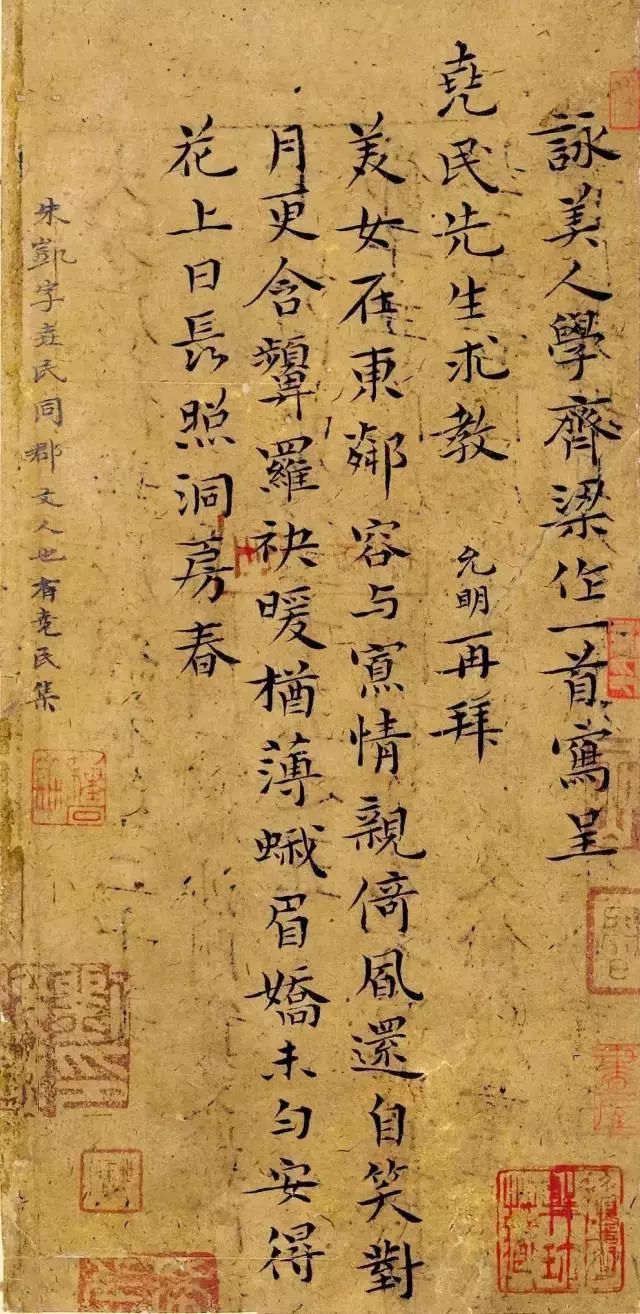 詠美人學齊梁作一首寫呈
堯民先生求教 允明再拜
美女在東鄰容与情親倚風還自笑對
月更含顰羅袂暖猶薄蛾眉嬌未勻安得
花上日長照洞房春
朱凱字堯民同郡文人也有堯民集